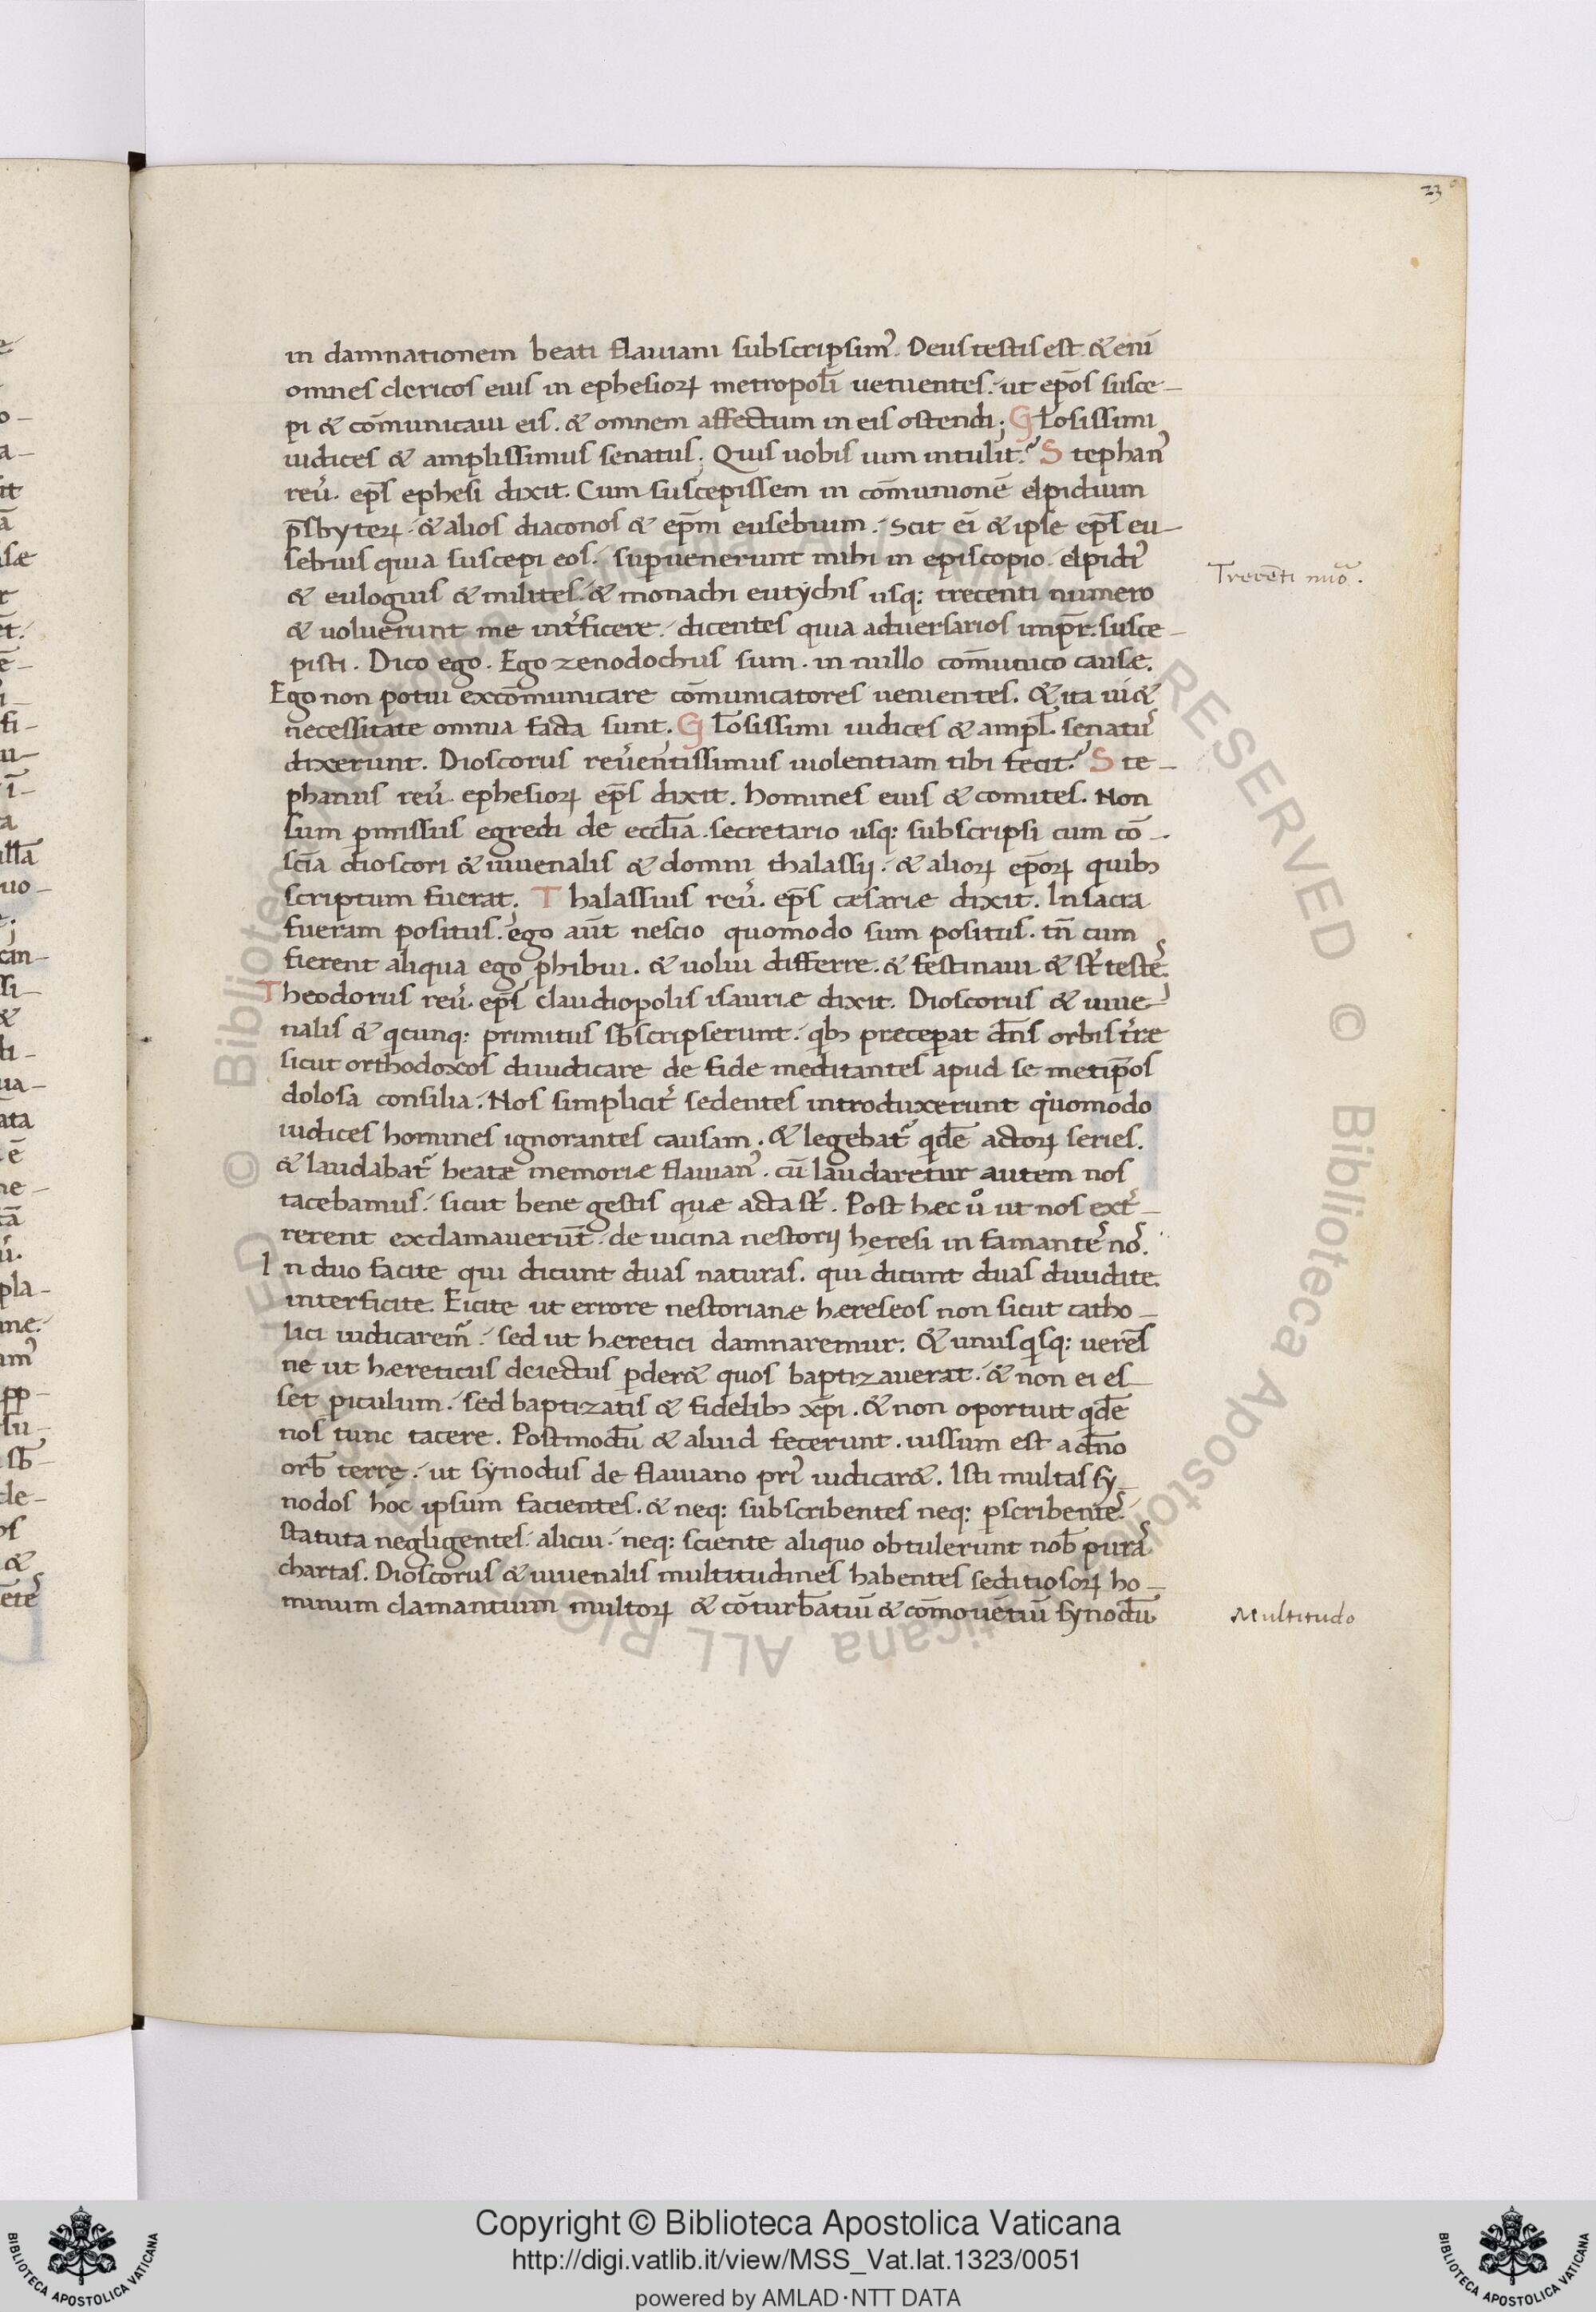 23
in damnationem beati flauiani subscripsim᾽. Deus testis est. & eni̅
omnes clericos eius in ephesioꝝ metropoli̅ uenientes. ut ep̅os susce-
pi & co̅municaui eis. & omnem affectum in eis ostendi; Gl̅osissimi
iudices & amplissimus senatus; Quis uobis uim intulit? Stephan᾽
reu̅. ep̅s ephesi dixit. Cum suscepissem in co̅munione̅ elpidium
p̅sbyteꝝ. & alios diaconos & ep̅m eusebium. Scit ei̅ & ipse ep̅s eu-
sebius quia suscepi eos. sup̱uenerunt mihi in episcopio. elpidi᾽
& eulogius & milites & monachi eutychis usq: trecenti numero
& uoluerunt me int᾽ficere. dicentes quia aduersarios imp̅r. susce-
pisti. Dico ego. Ego zenodochus sum. in nullo com̅unico causæ.
Ego non potui exco̅municare co̅municatores uenientes. & ita ui &
necessitate omnia facta sunt. Gl̅osissimi iudices & ampl̅. senatu᾽
dixerunt. Dioscorus reu᾽entissimus uiolentiam tibi fecit? Ste-
phanus reu̅. ephesioꝝ ep̅s dixit. homines eius & comites. Non
sum p̱missus egredi de eccl̅ia. secretario usq: subscripsi cum co̅-
sc̅ia dioscori & iuuenalis & domni thalassij. & alioꝝ ep̅oꝝ quibꝫ
scriptum fuerat. Thalassius reu̅. ep̅s cæsariæ dixit. In sacra
fueram positus. ego aut̅ nescio quomodo sum positus. tn̅ cum
fierent aliqua ego p̱hibui. & uolui differre. & festinaui & s̅t teste᾽.
Theodorus reu̅. ep̅s claudiopolis isauriæ dixit. Dioscorus & iuue-
nalis & qcunq: primitus sb̅scripserunt. qbꝫ præcep̱at dn̅s orbis t᾽ræ
sicut orthodoxos diuudicare de fide meditantes apud se metip̅os
dolosa consilia. Nos simplicit᾽ sedentes introduxerunt quomodo
iudices homines ignorantes causam. & legebat᾽ qde̅ actoꝝ series.
& laudabat᾽ beatæ memoriæ flauian᾽. cu̅ laudaretur autem nos
tacebamus. sicut bene gestis quæ acta s̅t. Post hæc ů ut nos ext᾽-
rerent exclamauerun̅t. de uicina nestorij hęresi in famante᾽ no᾽.
In duo facite qui dicunt duas naturas. qui dicunt duas diuidite.
interficite. Eicite ut errore nestorianæ hæreseos non sicut catho-
lici iudicarem᾽. sed ut hæretici damnaremur. & unusqisq: uere̅s
ne ut hæreticus deiectus p̱der& quos baptizauerat. & non ei es-
set p̱iculum. sed baptizatis & fidelibꝫ xp̅i. & non oportuit qde̅
nos tunc tacere. Postmodu̅ & aliud fecerunt. iussum est a dn̅o
orb̅ terrę. ut synodus de flauiano pri᾽ iudicar&. Isti multas sy-
nodos hoc ipsum facientes. & neq: subscribentes neq: p̱scribente᾽
statuta negligentes. alicui. neq: sciente aliquo obtulerunt nob̅ pura᾽
chartas. Dioscorus & iuuenalis multitudines habentes seditiosoꝝ ho-
minum clamantium multoꝝ & co̅turba̅tiu̅ & co̅moue̅tiu̅ synodu̅
Trece̅ti nu̅o.
Multitudo
Copyright © Biblioteca Apostolica Vaticana
http://digi.vatlib.it/view/MSS_Vat.lat.1323/0051
powered by AMLAD·NTT DATA
BIBLIOTECA APOSTOLICA VATICANA
BIBLIOTECA APOSTOLICA VATICANA